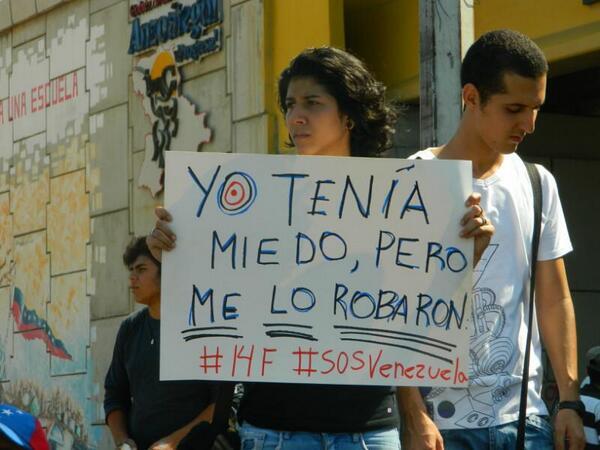 A UNA ESCUELA
YO TENÍA
MIEDO, PERO
ME LO ROBARON.
#14F #SOSVenezuela